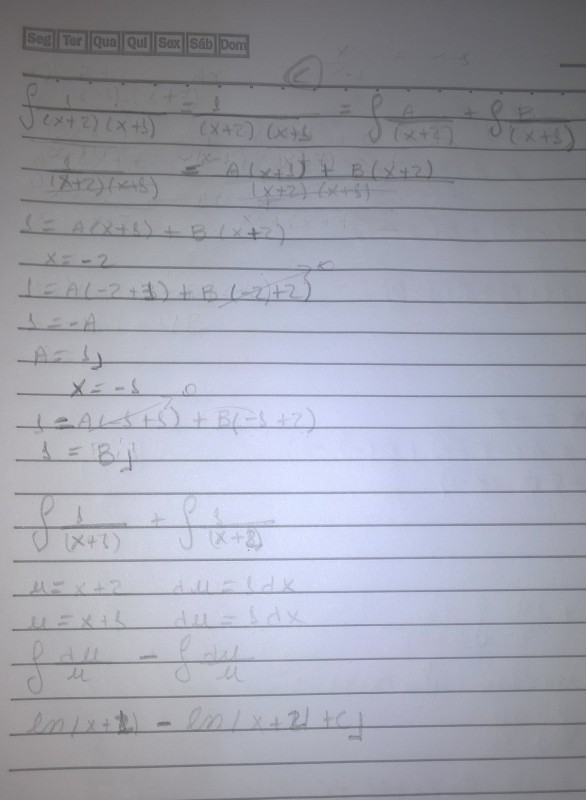 Seg Ter Qua Qui Sex Sáb Dom
C
∫ 1/((x+2)(x+1)) = 1/((x+2)(x+1) = ∫ A/(x+2) + ∫ B/(x+1)
1/((x+2)(x+1)) = (A(x+1) + B(x+2))/((x+2)(x+1))
1 = A(x+1) + B(x+2)
x = -2
1 = A(-2+1) + B(-2+2) 0
1 = -A
A = 1
x = -1
1 = A(-1+1) 0 + B(-1+2)
1 = B
∫ 1/(x+1) + ∫ 1/(x+2)
u = x+2 du = 1dx
u = x+1 du = 1dx
∫ du/u - ∫ du/u
ln(x+1) - ln(x+2) + C